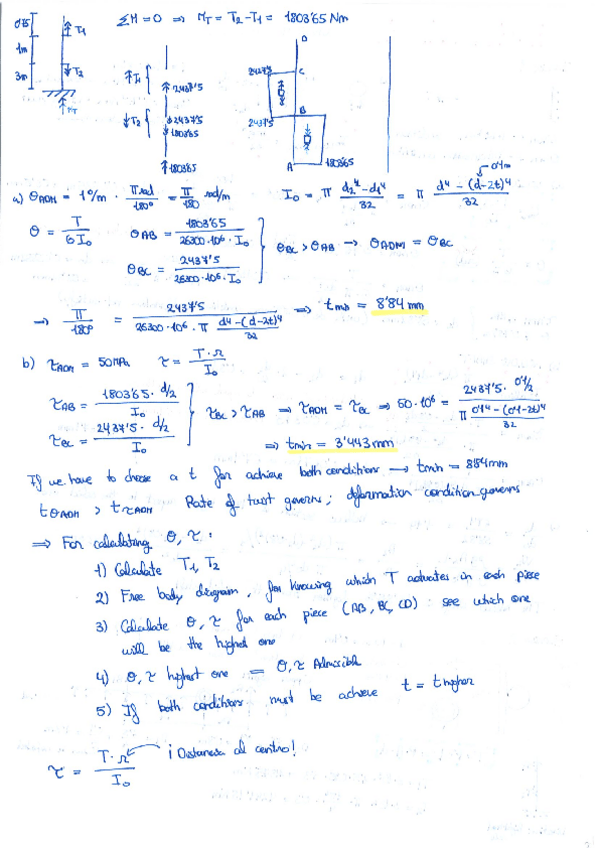 ΣM=0 ⇒ M_T = T2-T1 = 1803'65 Nm
0'75
T1
1m
T2
3m
M_T
T1 2437'5
T2 2437'5
1803'65
1803'65
D
2437'5 C
2437'5 B
A 1803'65
a) θADM = 1°/m · π rad/180° = π/180 rad/m
I₀ = π (d2⁴-d1⁴)/32 = π (d⁴-(d-2t)⁴)/32
0'1m
θ = T/GI₀
θAB = 1803'65/(26300·10⁶·I₀)
θBC = 2437'5/(26300·10⁶·I₀)
θBC > θAB → θADM = θBC
→ π/180° = 2437'5/(26300·10⁶·π (d⁴-(d-2t)⁴)/32) ⇒ tmin = 8'84 mm
b) τADM = 50MPa τ = T·r/I₀
τAB = 1803'65·d/2/I₀
τBC = 2437'5·d/2/I₀
τBC > τAB ⇒ τADM = τBC ⇒ 50·10⁶ = 2437'5·0'1/2/(π (0'1⁴-(0'1-2t)⁴)/32)
⇒ tmin = 3'443 mm
If we have to choose a t for achieve both conditions → tmin = 8'84mm
tθADM > tτADM Rate of twist governs; deformation condition governs
⇒ For calculating θ, τ:
1) Calculate T1, T2
2) Free body diagram, for knowing which T actuates in each piece
3) Calculate θ, τ for each piece (AB, BC, CD): see which one
will be the highest one
4) θ, τ highest one = θ, τ Admissible
5) If both conditions must be achieve t = t higher
τ = T·r/I₀ ¡Distancia al centro!